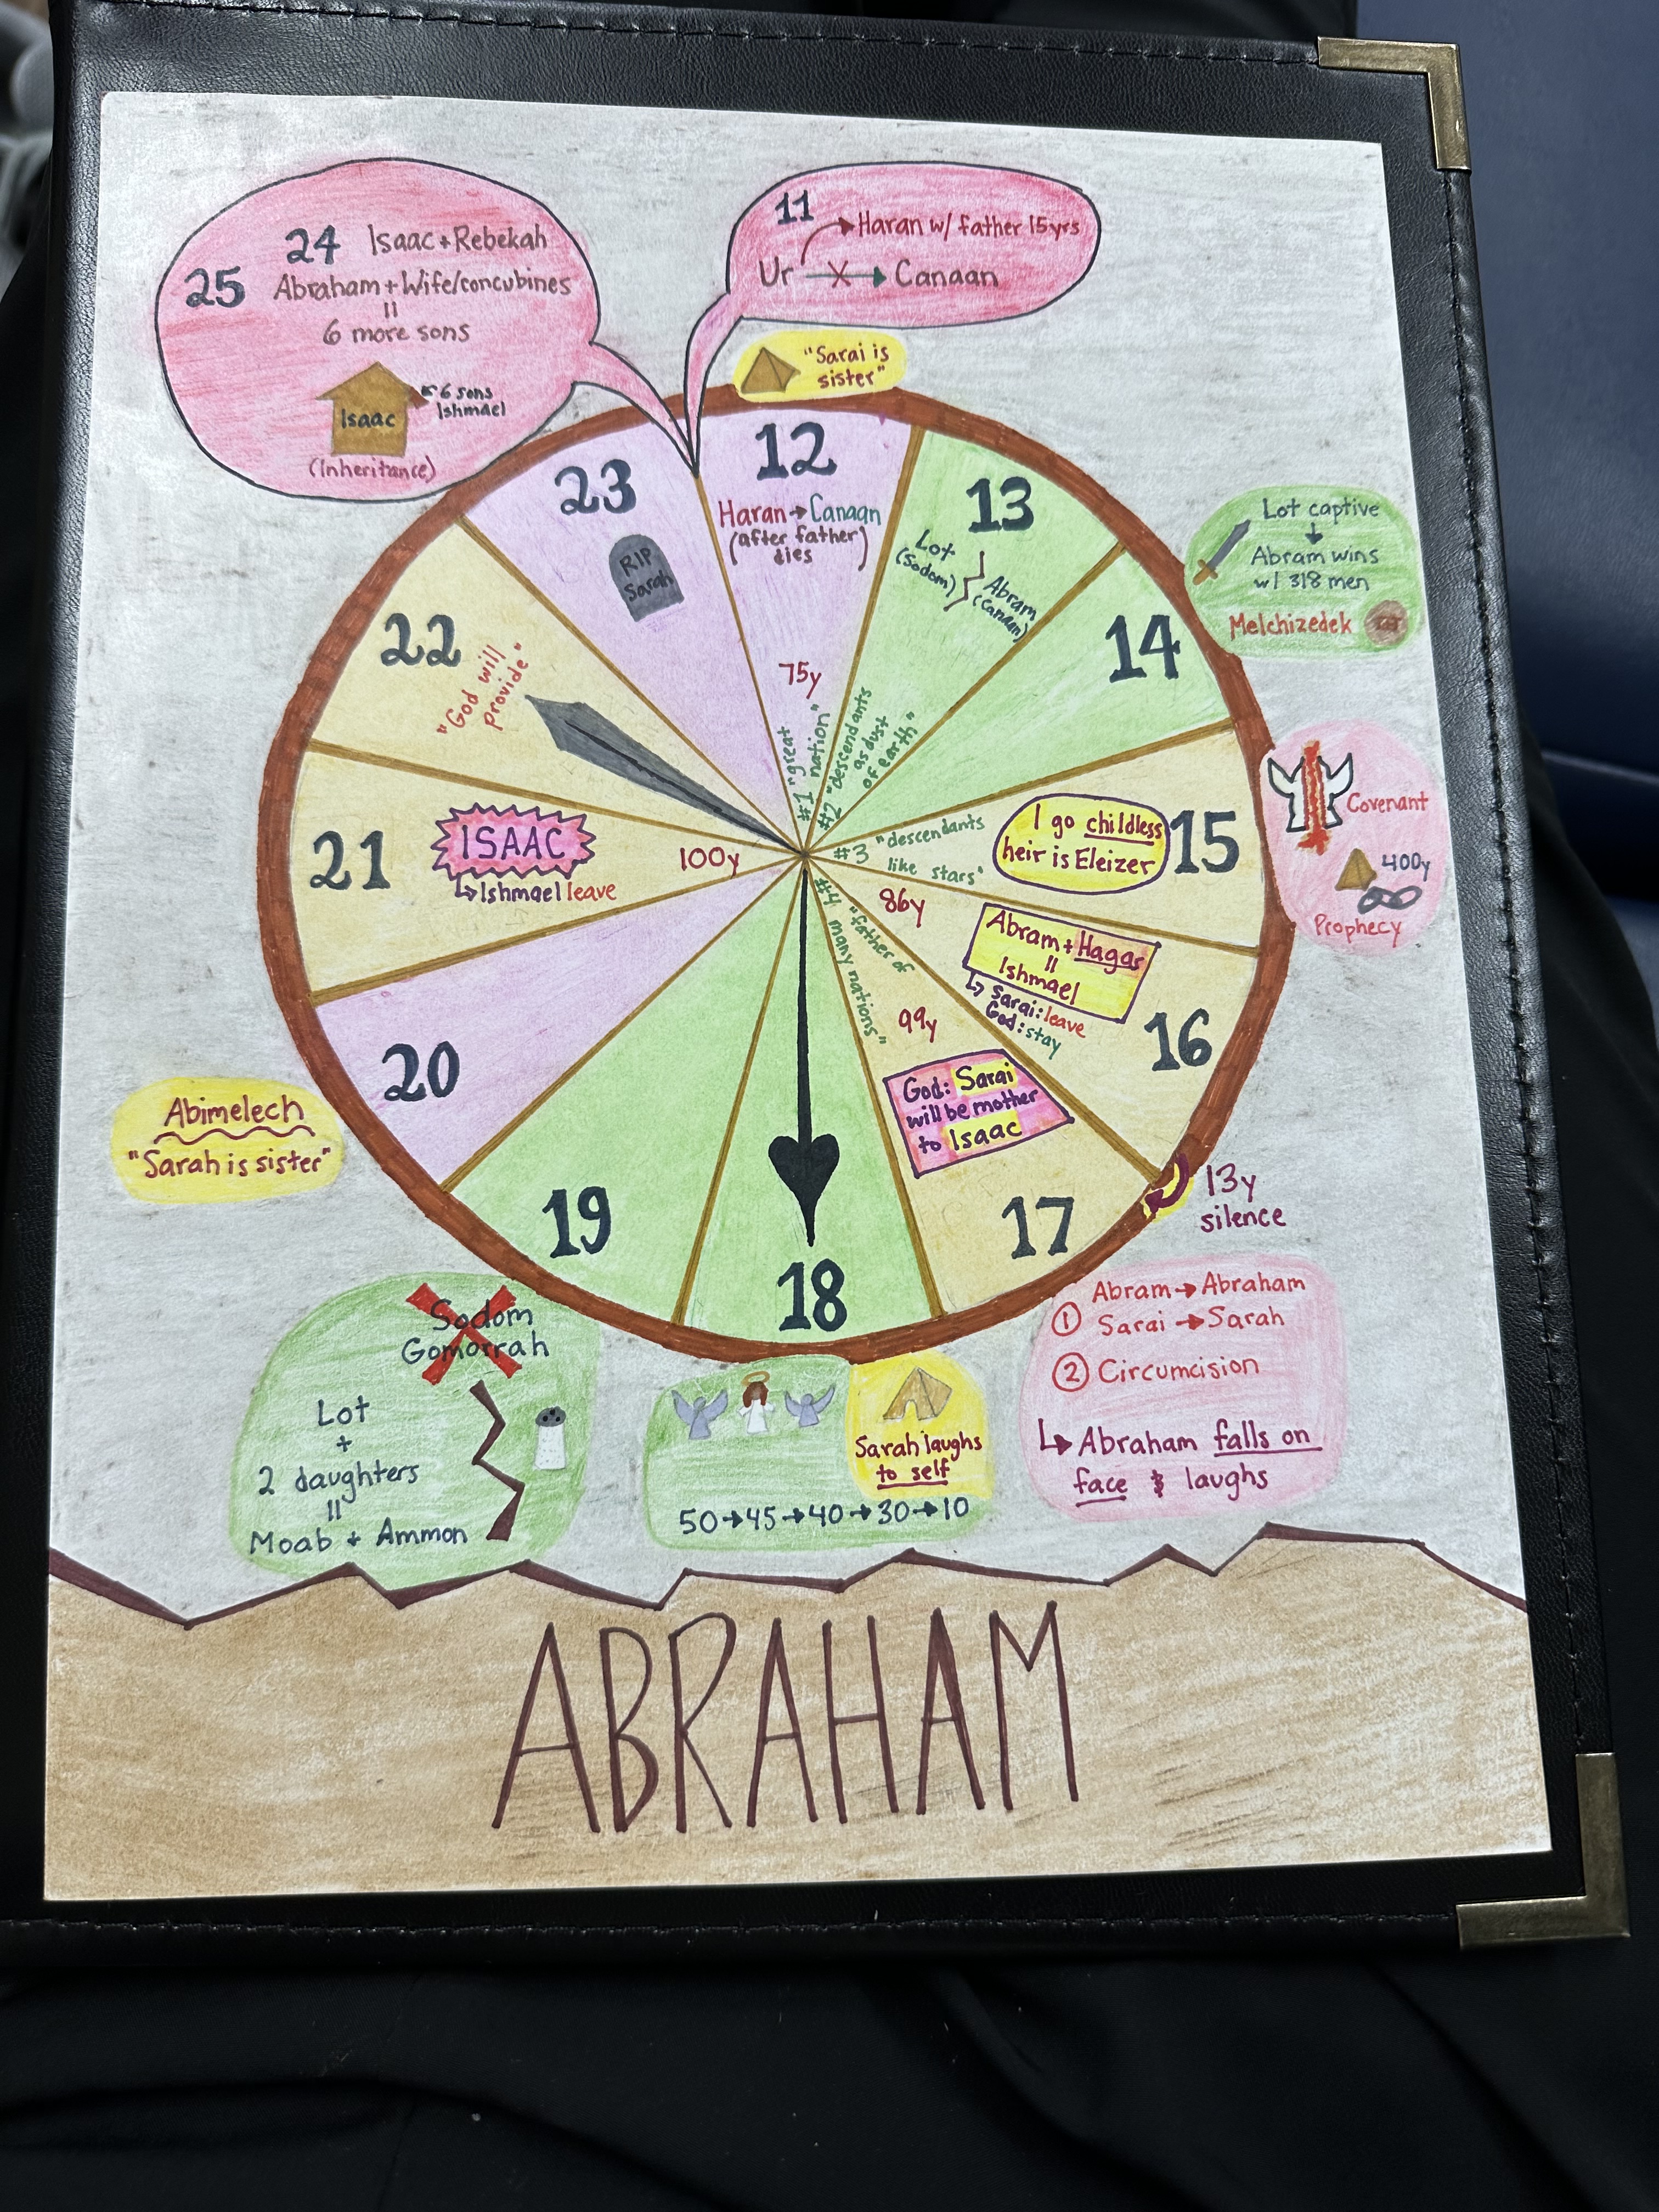 24 Isaac + Rebekah
25 Abraham + Wife/concubines
=
6 more sons
Isaac
6 sons
Ishmael
(Inheritance)
11
Haran w/ father 15yrs
Ur X Canaan
"Sarai is
sister"
12
Haran → Canaan
(after father
dies)
75y
#1 "great
nation"
13
Lot
(Sodom)
Abram
(Canaan)
#2 "descendants
as dust
of earth"
14
Lot captive
↓
Abram wins
w/ 318 men
Melchizedek
15
I go childless
heir is Eleizer
#3 "descendants
like stars"
Covenant
400y
Prophecy
16
86y
Abram + Hagar
=
Ishmael
↳ Sarai: leave
God: stay
13y
silence
17
99y
#4 "father of
many nations"
God: Sarai
will be mother
to Isaac
① Abram → Abraham
Sarai → Sarah
② Circumcision
↳ Abraham falls on
face & laughs
18
Sarah laughs
to self
50→45→40→30→10
19
Sodom
Gomorrah
Lot
+
2 daughters
=
Moab + Ammon
20
Abimelech
"Sarah is sister"
21
ISAAC
↳ Ishmael leave
100y
22
"God will
provide"
23
RIP
Sarah
ABRAHAM